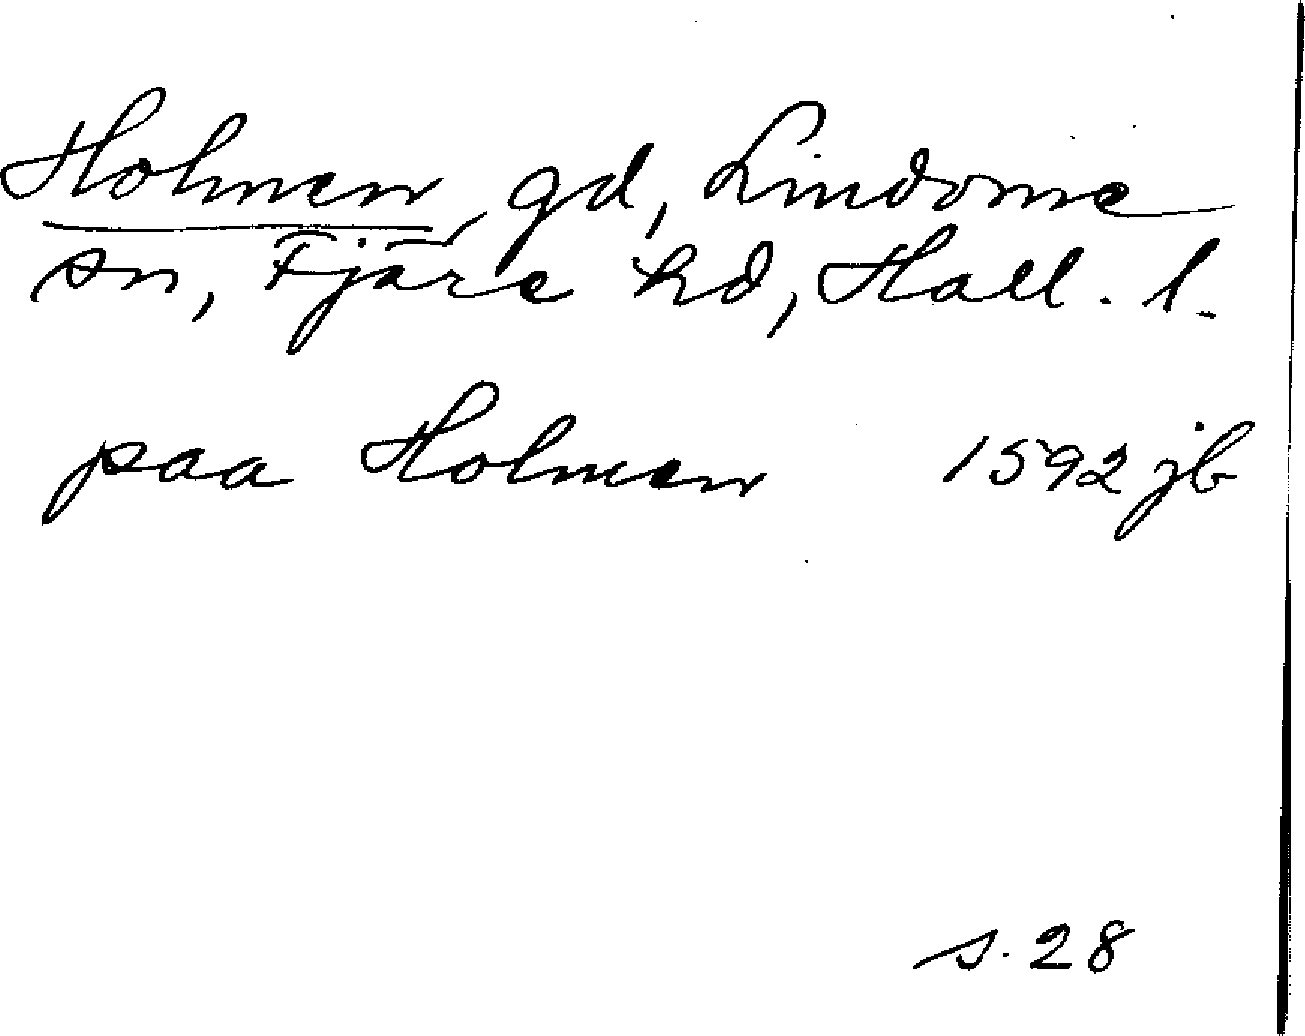 Holmen, gd, Lindome
sn, Fjäre hd, Hall. l.
paa Holmen 1592 jb
s. 28